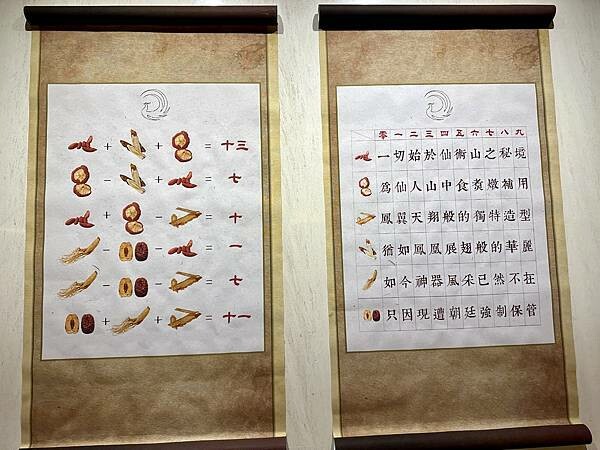 元
+ + = 十三
- + = 七
+ - = 十
- - = 一
+ - = 七
+ + = 十一
元
零一二三四五六七八九
一切始於仙術山之秘境
為仙人山中食煲燉補用
鳳翼天翔般的獨特造型
猶如鳳凰展翅般的華麗
如今神器風采已然不在
只因現遭朝廷強制保管